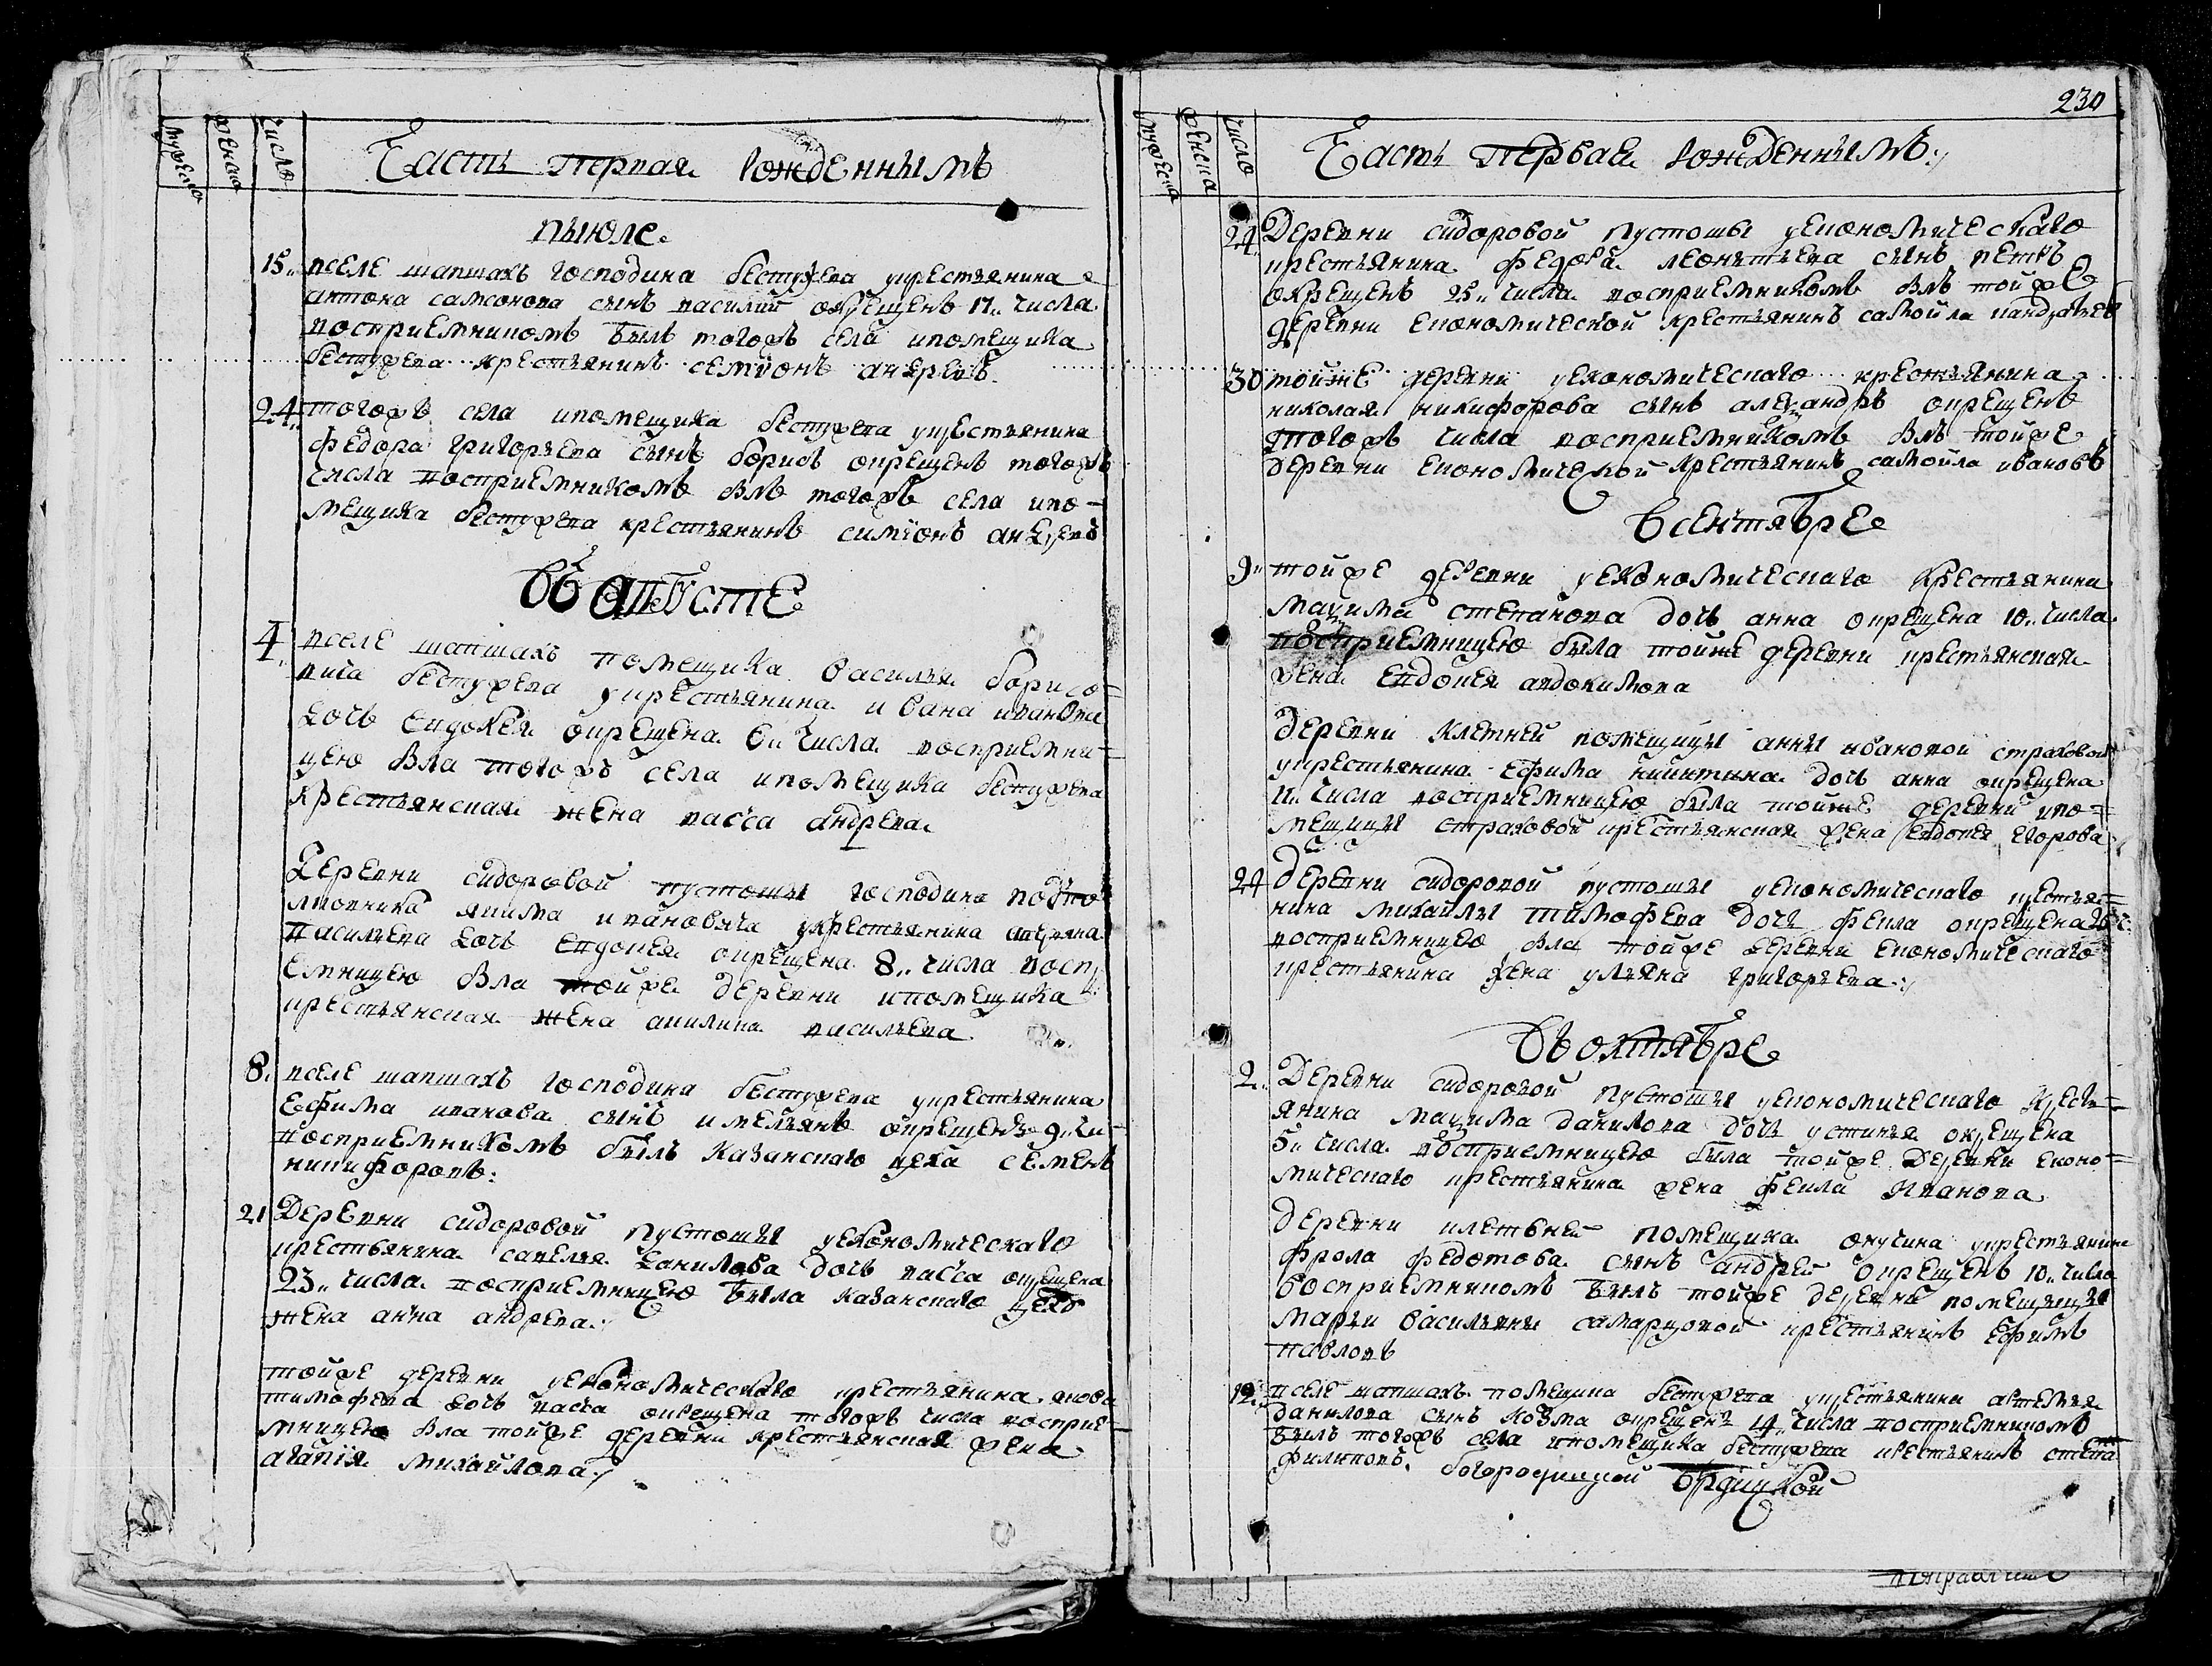 мужеска
женска
число
Часть первая рожденнымъ
выюле
15. вселе шапшахъ господина бестужева укрестьянина
антона самсонова сынъ василий окрещенъ 17. числа
восприемникомъ былъ тогожъ села ипомещика
бестужева крестьянинъ семионъ анъдревъ
24. тогожъ села ипомещика бестужева укрестьянина
федора григорьева сынъ борисъ окрещенъ тогожъ
числа восприемникомъ былъ тогожъ села ипо-
мещика бестужева крестьянинъ симионъ андревъ
Въ августе
4. вселе шапшахъ помещика василья борисо-
вича бестужева укрестьянина ивана иванова
дочь евдокея окрещена 6. числа восприемни-
цею была тогожъ села ипомещика бестужева
крестьянская жена васса андрева
Деревни сидоровой пустоши господина подпо
лковника якима ивановича укрестьянина
васильева дочь евдокея окрещена 8. числа воспр
емницею была тойже деревни ипомещика
крестьянская жена акилина васильева
8. вселе шапшахъ господина бестужева укрестьянина
Ефима иванова сынъ имельянъ окрещенъ 9. чи-
восприемникомъ былъ казанскаго цеха семенъ
никифоровъ:
21 Деревни сидоровой пустоши уекономическаго
крестьянина савелья данилова дочь васса окрещена
23. числа восприемницею была казанскаго цеха
жена анна андрева
тойже деревни уекономическаго крестьянина якова
тимофева дочь васса окрещена тогожъ числа восприе-
мницею была тойже деревни крестьянская жена
агапия михайлова
230
мужеска
женска
число
Часть первая рожденнымъ
24. Деревни сидоровой пустоши уекономическаго
крестьянина федора леонтьева сынъ петръ
окрещенъ 25. числа восприемникомъ былъ тойже
деревни економической крестьянинъ самойла
30 тойже деревни уекономическаго крестьянина
николая никифорова сынъ александръ окрещенъ
тогожъ числа восприемникомъ былъ тойже
деревни економической крестьянинъ самойла ивановъ
Всентябре
9. тойже деревни уекономическаго крестьянина
максима степанова дочь анна окрещена 10. числа
восприемницею была тойже деревни крестьянская
жена евдокея авдокимова
Деревни клетней помещицы анны ивановой страховой
укрестьянина ефима никитина дочь анна окрещена
11. числа восприемницею была тойже деревни ипо-
мещицы страховой крестьянская жена евдокея егорова
24 Деревни сидоровой пустоши уекономическаго крестья-
нина михайлы тимофева дочь фекла окрещена
восприемницею была тойже деревни економическаго
крестьянина жена ульяна григорьева
Въ октябре
2. Деревни сидоровой пустоши уекономическаго крест-
янина максима данилова дочь устинья окрещена
5. числа восприемницею была тойже деревни еконо-
мическаго крестьянина жена фекла иванова
Деревни клетьней помещика окучина укрестьянина
фрола федотова сынъ андрей окрещенъ 10. числа
восприемникомъ былъ тойже деревни помещицы
марьи васильевны самарцовой крестьянинъ ефимъ
павловъ
12. вселе шапшахъ помещика бестужева укрестьянина артемья
данилова сынъ козма окрещенъ 14. числа восприемникомъ
былъ тогожъ села ипомещика бестужева крестьянинъ степа
филиповъ. богородицкой